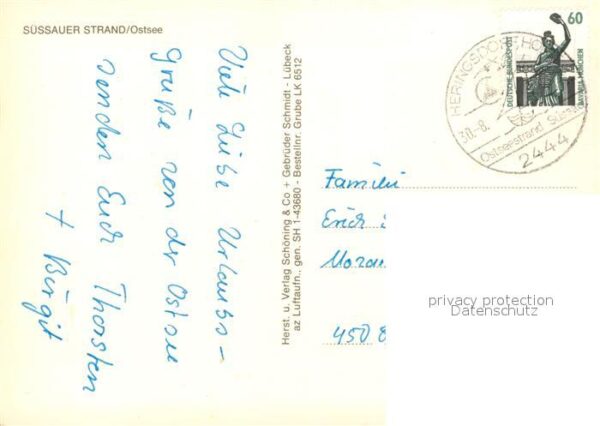 SÜSSAUER STRAND/Ostsee
Viele liebe Urlaubs-
grüße von der Ostsee
senden Euch Thorsten
+ Birgit
Herst. u. Verlag Schöning & Co + Gebrüder Schmidt - Lübeck
az Luftaufn., gen. SH 1-43680 - Bestellnr. Grube LK 6512
60
DEUTSCHE BUNDESPOST
BAVARIA MÜNCHEN
HERINGSDORF HO
30.-8.
Ostseestrand Süssau
2444
Familie
Erich
450
privacy protection
Datenschutz